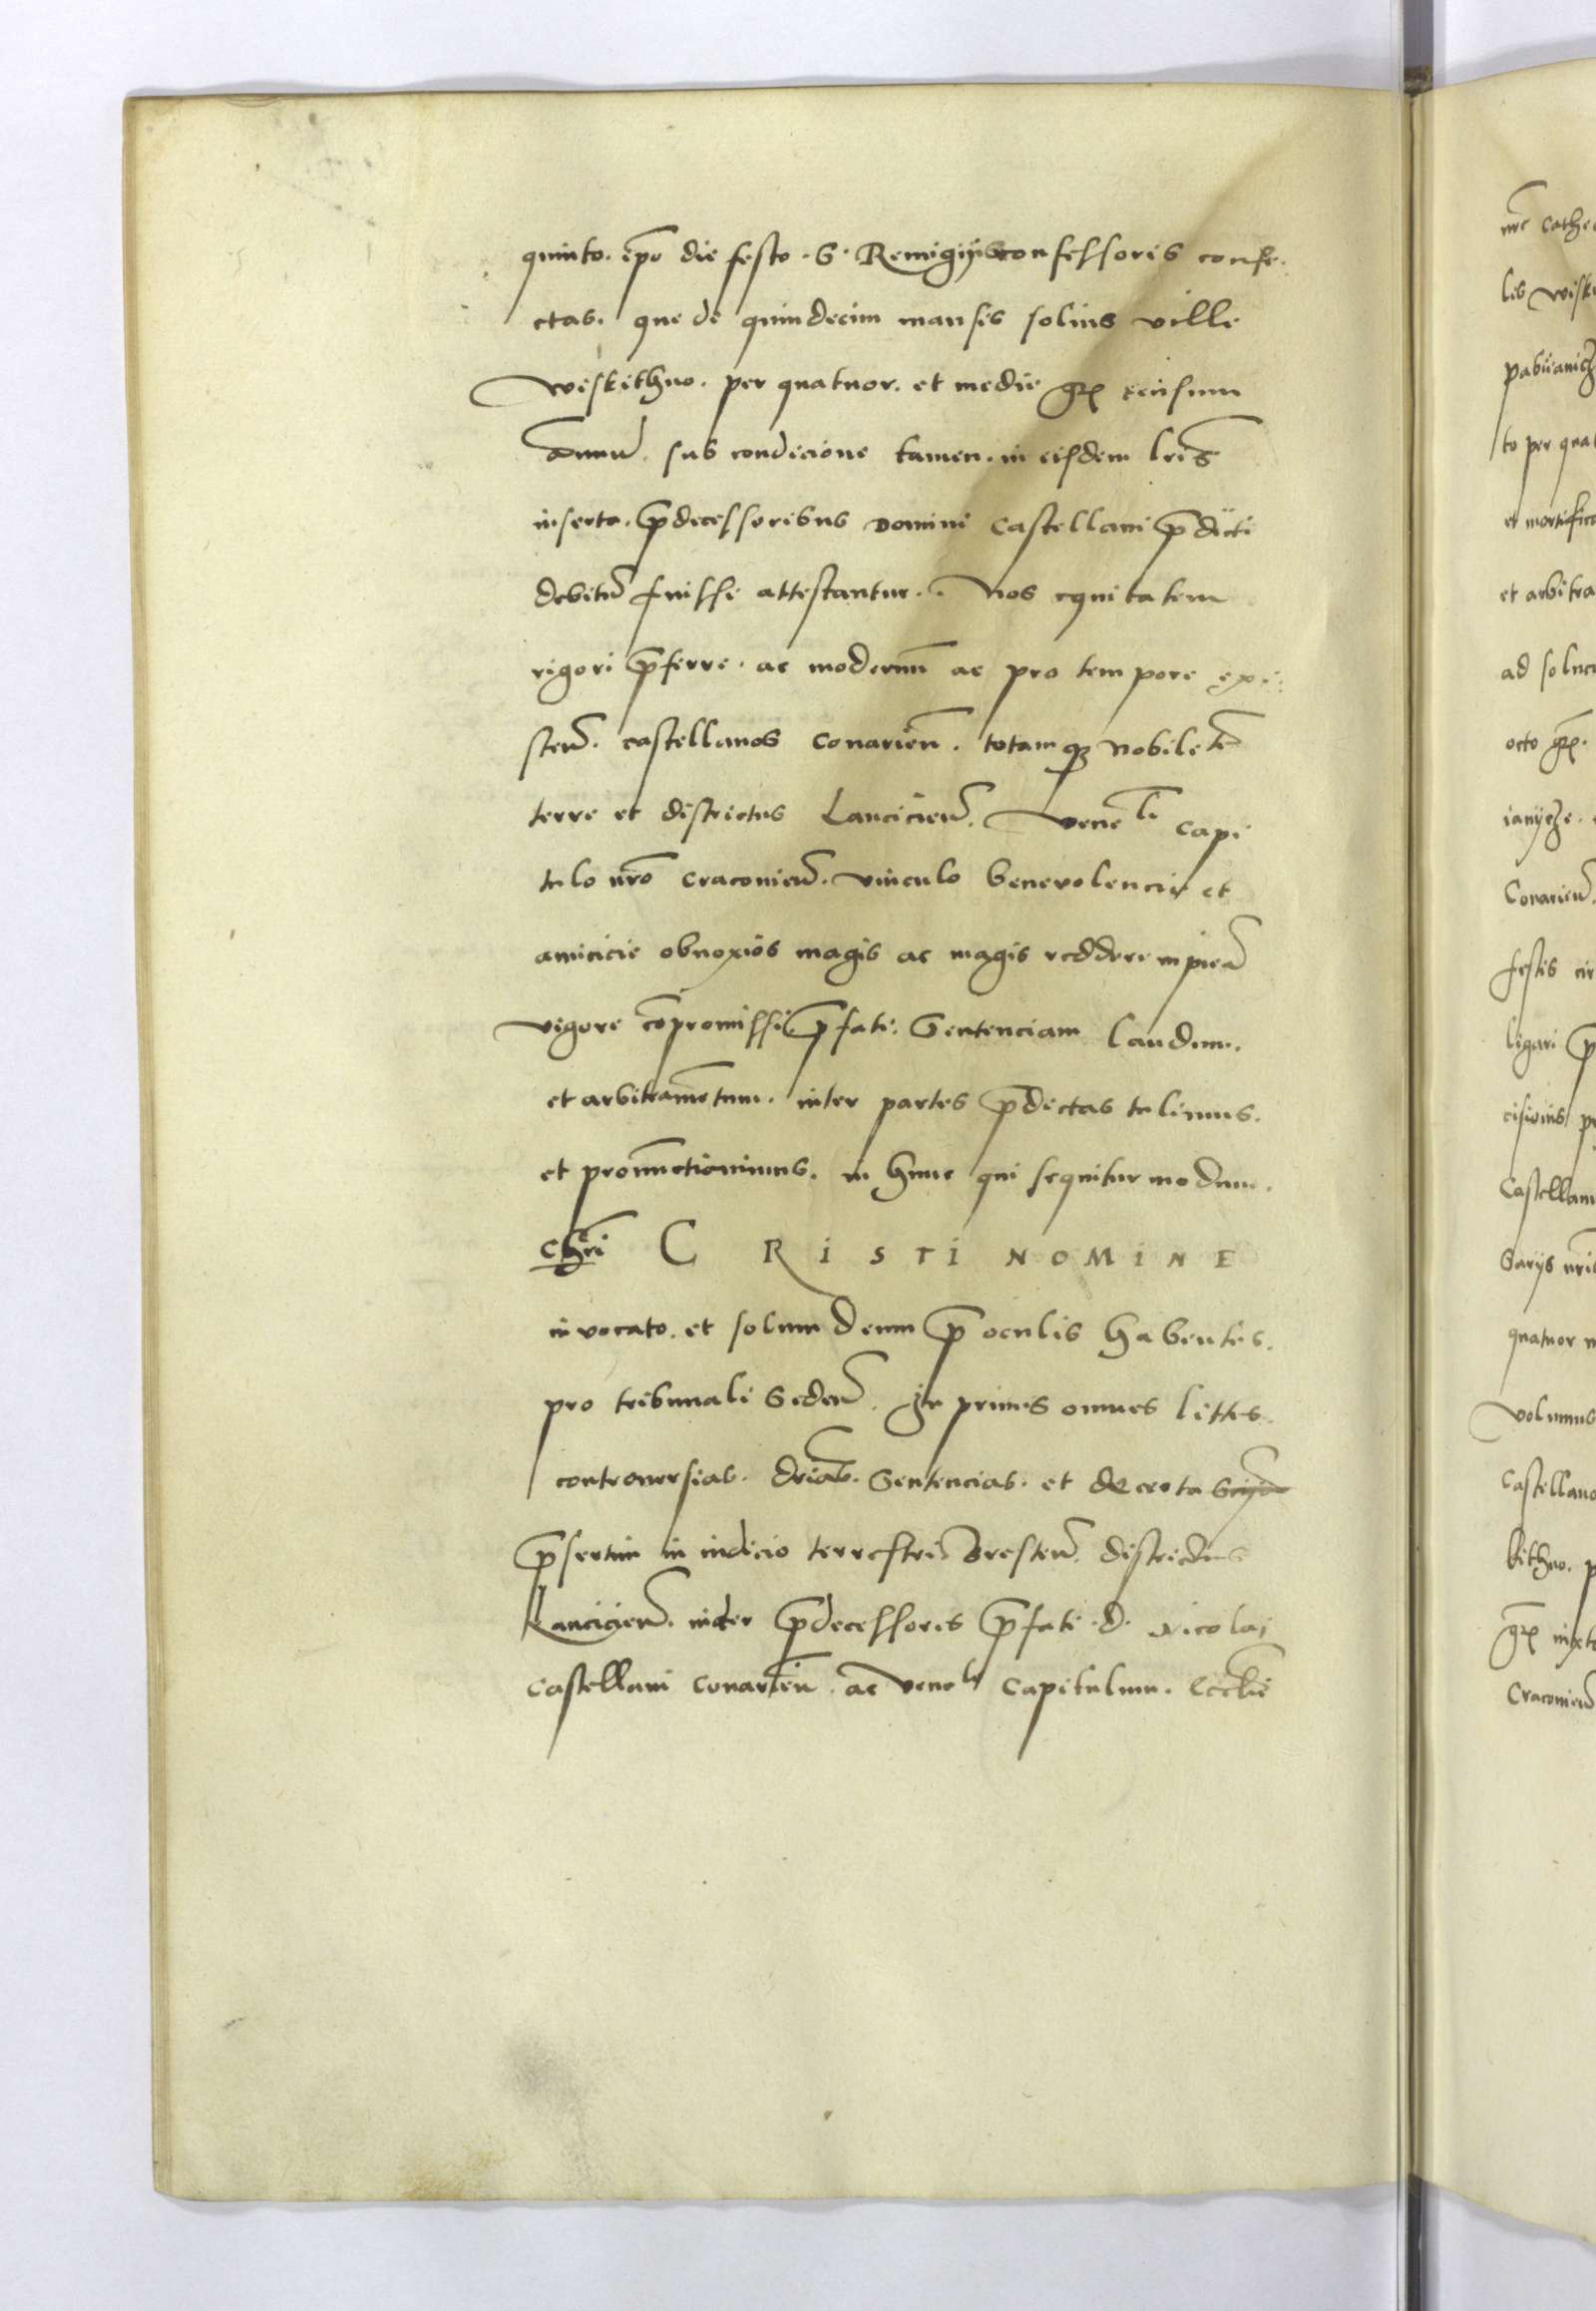 quinto. ip̃o die festo. S. Remigij confessoris confe-
ctas. que de quindecim mansis solius ville
Wiskithno. per quatuor. et medie grͫ censum
annuũ. sub condicione tamen. in eisdem lr̃is
inserta. p̃decessoribus Domini Castellani p̃dicti
debitũ fuisse attestantur. Nos equitatem
rigori p̃ferre. ac modernũ ac pro tempore exi-
steñ. castellanos Conarieñ. totamqꝫ Nobilitẽ
terre et districtus Lancicieñ. Veneˡⁱ Capi
tulo nr̃o Cracovieñ. vinculo benevolencie et
amicicie obnoxios magis ac magis reddere
vigore cõpromissi p̃fati. Sentenciam Laudum.
et arbitramẽtum. inter partes p̃dictas tulimus.
et pronunctiavimus. in hunc qui sequitur modum.
Chr̃i CRISTI NOMINE
invocato. et solum Deum p̃ oculis habentes.
pro tribunali Sedeñ. In primis omnes littes
controversias. dr̃ias. Sentencias. et decreta
p̃sertim in iudicio terrestri Bresteñ. districtus
Lancicieñ. inter p̃decessores p̃fati .d. Nicolai
Castellani Conarieñ. ac veneˡᵉ Capitulum. Eccl̃ie
nr̃e Cathe
lis Wisk
pabiianicz
to per quat
et mortifica
et arbitra
ad soluc
octo grͫ.
Conarieñ.
festis cir
ligari p̃
cisionis p
Castellani
Sarijs nr̃is
quatuor m
volumus
Castellano
kithno. p
grͫ iuxta
Cracovieñ